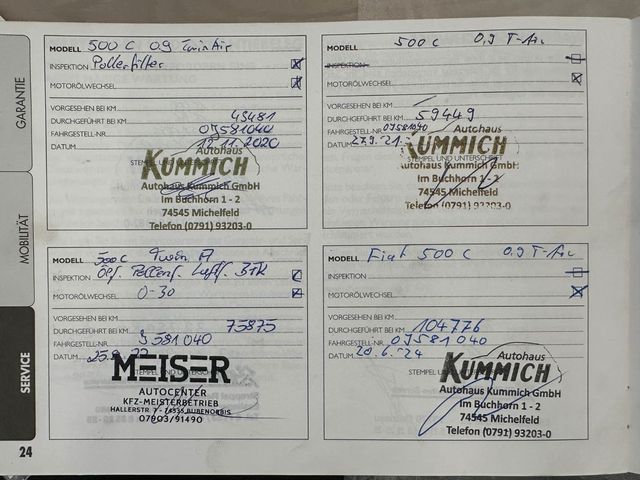 GARANTIE
MOBILITÄT
SERVICE
24
MODELL 500 C 0.9 TwinAir
INSPEKTION Pollenfilter
MOTORÖLWECHSEL
VORGESEHEN BEI KM
DURCHGEFÜHRT BEI KM 43481
FAHRGESTELL-NR. 0J581040
DATUM 12.11.2020
STEMPEL UND UNTERSCHRIFT
Autohaus
KUMMICH
Autohaus Kummich GmbH
Im Buchhorn 1 - 2
74545 Michelfeld
Telefon (0791) 93203-0
MODELL 500 C 0,9 T-Air
INSPEKTION
MOTORÖLWECHSEL
VORGESEHEN BEI KM
DURCHGEFÜHRT BEI KM 59449
FAHRGESTELL-NR. 0J581040
DATUM 27.9.21
STEMPEL UND UNTERSCHRIFT
Autohaus
KUMMICH
Autohaus Kummich GmbH
Im Buchhorn 1 - 2
74545 Michelfeld
Telefon (0791) 93203-0
MODELL 500C Twin A
INSPEKTION Pollenf. Luftf.
MOTORÖLWECHSEL 0-30
VORGESEHEN BEI KM
DURCHGEFÜHRT BEI KM 73875
FAHRGESTELL-NR. J581040
DATUM
STEMPEL UND UNTERSCHRIFT
MEISER
AUTOCENTER
KFZ-MEISTERBETRIEB
HALLERSTR. 7 - 74535 BUBENORBIS
07903/91490
MODELL Fiat 500 C 0.9 T-Air
INSPEKTION
MOTORÖLWECHSEL
VORGESEHEN BEI KM
DURCHGEFÜHRT BEI KM 104776
FAHRGESTELL-NR. 0J581040
DATUM 20.6.24
STEMPEL UND UNTERSCHRIFT
Autohaus
KUMMICH
Autohaus Kummich GmbH
Im Buchhorn 1 - 2
74545 Michelfeld
Telefon (0791) 93203-0